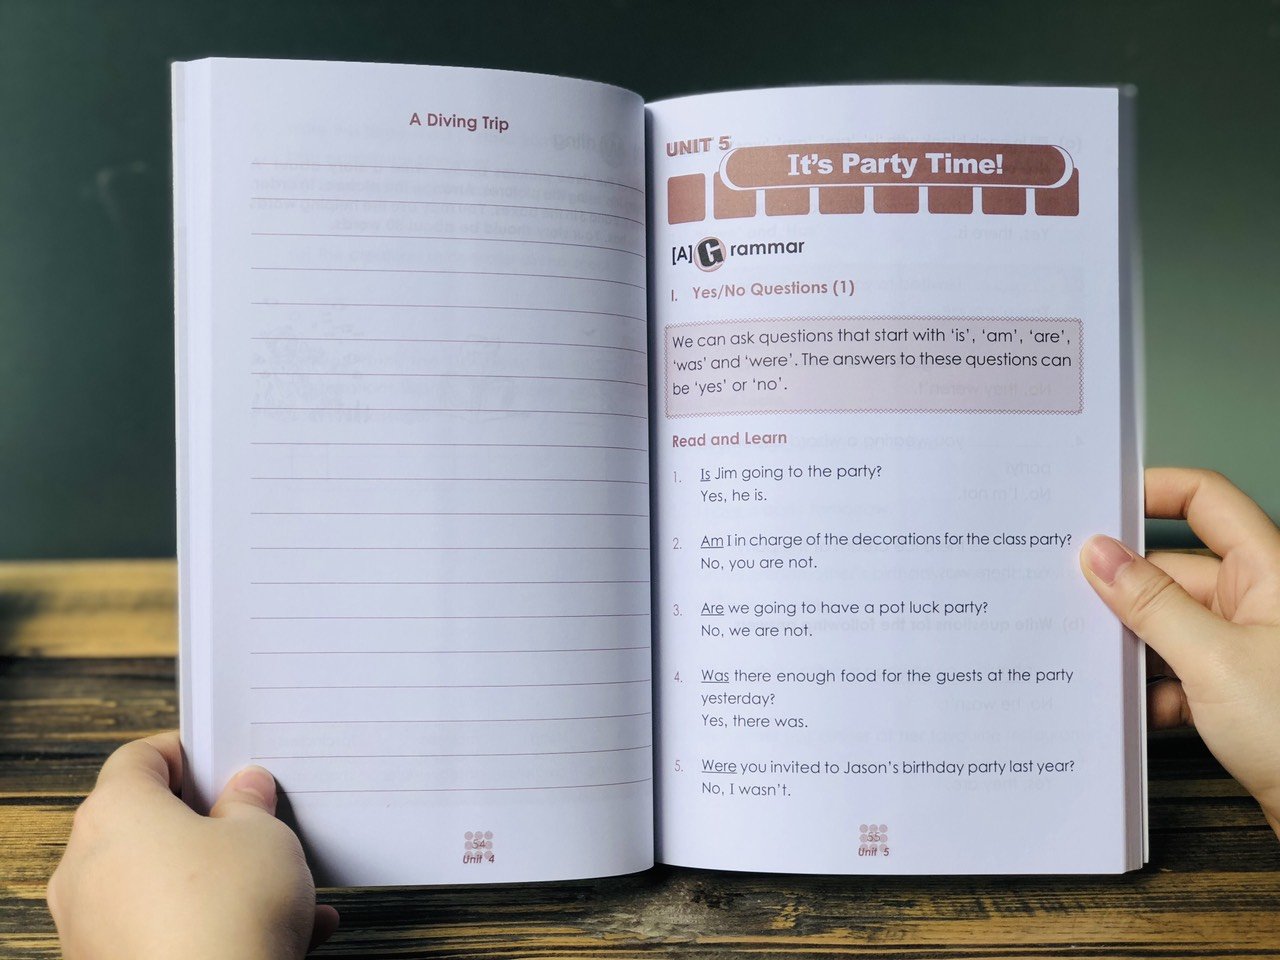 A Diving Trip
54
Unit 4
UNIT 5
It's Party Time!
[A] Grammar
I. Yes/No Questions (1)
We can ask questions that start with 'is', 'am', 'are',
'was' and 'were'. The answers to these questions can
be 'yes' or 'no'.
Read and Learn
1. Is Jim going to the party?
Yes, he is.
2. Am I in charge of the decorations for the class party?
No, you are not.
3. Are we going to have a pot luck party?
No, we are not.
4. Was there enough food for the guests at the party
yesterday?
Yes, there was.
5. Were you invited to Jason's birthday party last year?
No, I wasn't.
55
Unit 5